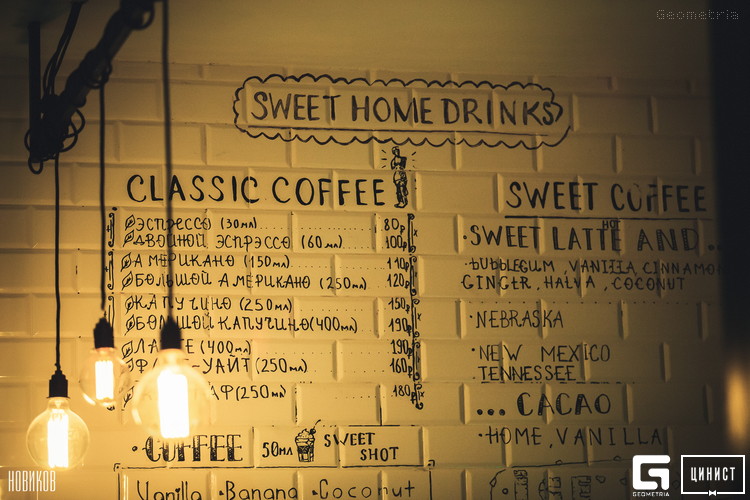 Geometria
SWEET HOME DRINKS
CLASSIC COFFEE
ЭСПРЕССО (30мл) 80р
ДВОЙНОЙ ЭСПРЭССО (60мл) 100р
АМЕРИКАНО (150мл) 110р
БОЛЬШОЙ АМЕРИКАНО (250мл) 120р
КАПУЧИНО (250мл) 150р
БОЛЬШОЙ КАПУЧИНО (400мл) 190р
(400мл) 190р
-УАЙТ (250мл) 160р
(250мл) 180р
COFFEE 50мл SWEET SHOT
Vanilla • Banana • Coconut
SWEET COFFEE
• SWEET LATTE AND ...
HOT
• BUBBLEGUM, VANILLA, CINNAMO
GINGER, HALVA, COCONUT
• NEBRASKA
• NEW MEXICO
TENNESSEE
... CACAO
• HOME, VANILLA
НОВИКОВ
G
GEOMETRIA
ЦИНИСТ